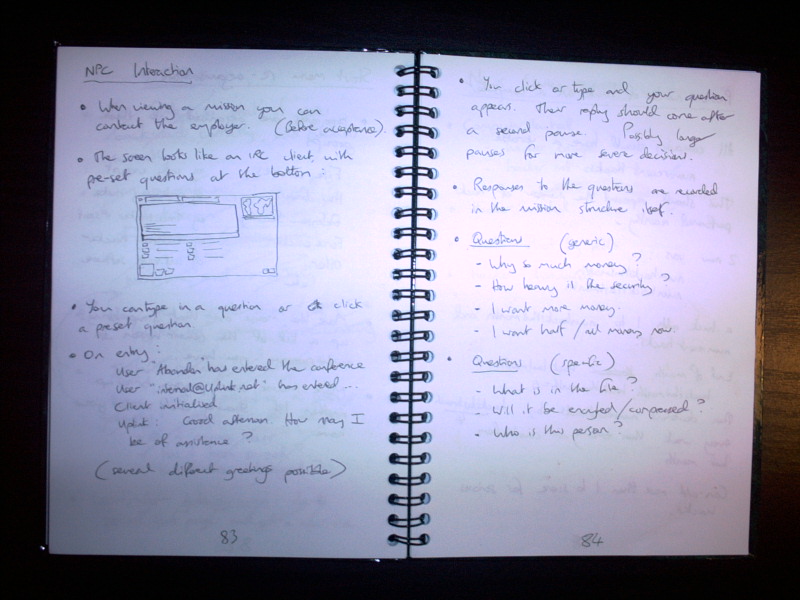 NPC Interaction
• When viewing a mission you can
contact the employer. (Before acceptance).
• The screen looks like an IRC client, with
pre-set questions at the bottom :
• You can type in a question or click
a preset question.
• On entry :
User 'Abandon' has entered the conference
User "internal@Uplink.net" has entered ...
Client initialised
Uplink : Good afternoon. How may I
be of assistance ?
(several different greetings possible)
83
• You click or type and your question
appears. Their reply should come after
a second pause. Possibly longer
pauses for more severe decisions.
• Responses to the questions are recorded
in the mission structure itself.
• Questions (generic)
- Why so much money ?
- How heavy is the security ?
- I want more money.
- I want half / all money now
• Questions (specific)
- What is in the file ?
- Will it be encrypted/compressed ?
- Who is this person ?
84